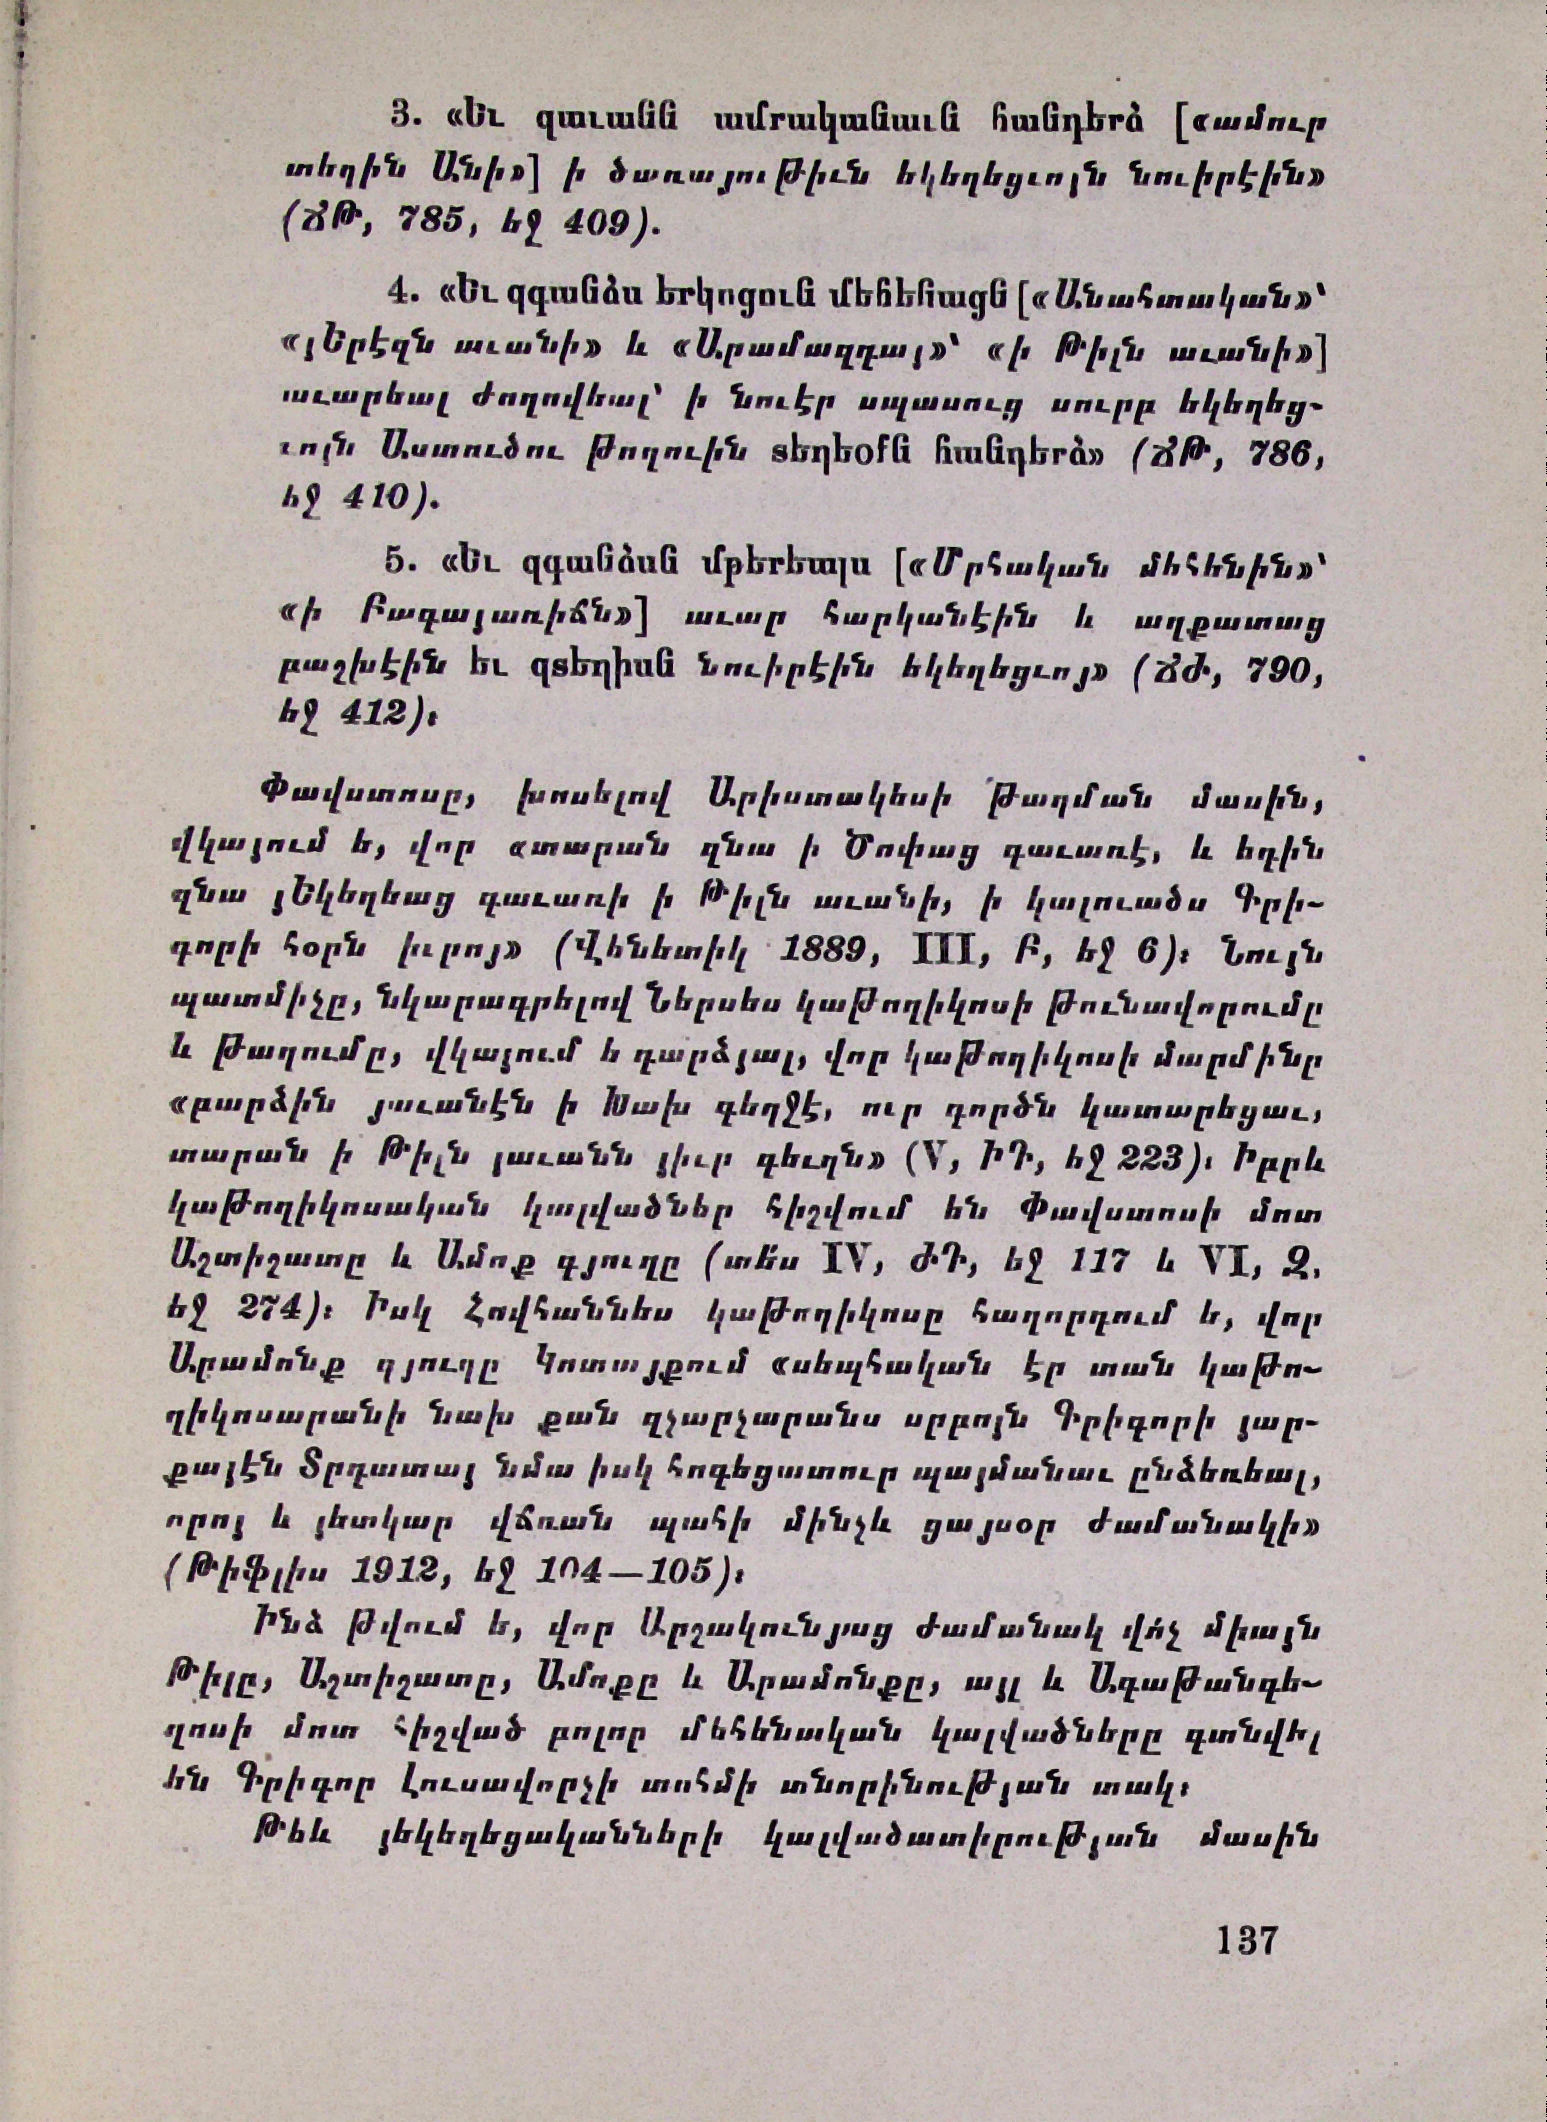 3. «Եւ զաւանն ամրականաւն հանդերձ [«ամուր
տեղին Անի»] ի ծառայութիւն եկեղեցւոյն նուիրէին»
(ՃԹ, 785, եջ 409).
4. «Եւ զգանձս երկոցուն մեհենացն [«Անահտական»՝
«յԵրէզն աւանի» և «Արամազդայ»՝ «ի Թիլն աւանի»]
աւարեալ ժողովեալ՝ ի նուէր սպասուց սուրբ եկեղեց-
ւոյն Աստուծու թողուին տեղեօքն հանդերձ» (ՃԹ, 786,
եջ 410).
5. «Եւ զգանձսն մթերեալս [«Մրհական մեհենին»՝
«ի Բագայառիճն»] աւար հարկանէին և աղքատաց
բաշխէին եւ զտեղիսն նուիրէին եկեղեցւոյ» (ՃԺ, 790,
եջ 412)։
Փավստոսը, խոսելով Արիստակեսի թաղման մասին,
վկայում ե, վոր «տարան զնա ի Ծոփաց գաւառէ, և եդին
զնա յԵկեղեաց գաւառի ի Թիլն աւանի, ի կալուածս Գրի-
գորի հօրն իւրոյ» (Վենետիկ 1889, III, Բ, եջ 6)։ Նույն
պատմիչը, նկարագրելով Ներսես կաթողիկոսի թունավորումը
և թաղումը, վկայում ե դարձյալ, վոր կաթողիկոսի մարմինը
«բարձին յաւանէն ի Խախ գեղջէ, ուր գործն կատարեցաւ,
տարան ի Թիլն յաւանն յիւր գեւղն» (V, ԻԴ, եջ 223)։ Իբրև
կաթողիկոսական կալվածներ հիշվում են Փավստոսի մոտ
Աշտիշատը և Ամոք գյուղը (տե՛ս IV, ԺԴ, եջ 117 և VI, Զ,
եջ 274)։ Իսկ Հովհաննես կաթողիկոսը հաղորդում ե, վոր
Արամոնք գյուղը Կոտայքում «սեպհական էր տան կաթո-
ղիկոսարանի նախ քան զչարչարանս սրբոյն Գրիգորի յար-
քայէն Տրդատայ նմա իսկ հոգեցատուր պայմանաւ ընձեռեալ,
որոյ և յետկար վճռան պահի մինչև ցայսօր ժամանակի»
(Թիֆլիս 1912, եջ 104—105)։
Ինձ թվում ե, վոր Արշակունյաց ժամանակ վո՛չ միայն
Թիլը, Աշտիշատը, Ամոքը և Արամոնքը, այլ և Ագաթանգե-
ղոսի մոտ հիշված բոլոր մեհենական կալվածները գտնվել
են Գրիգոր Լուսավորչի տոհմի տնորինության տակ։
Թեև յեկեղեցականների կալվածատիրության մասին
137